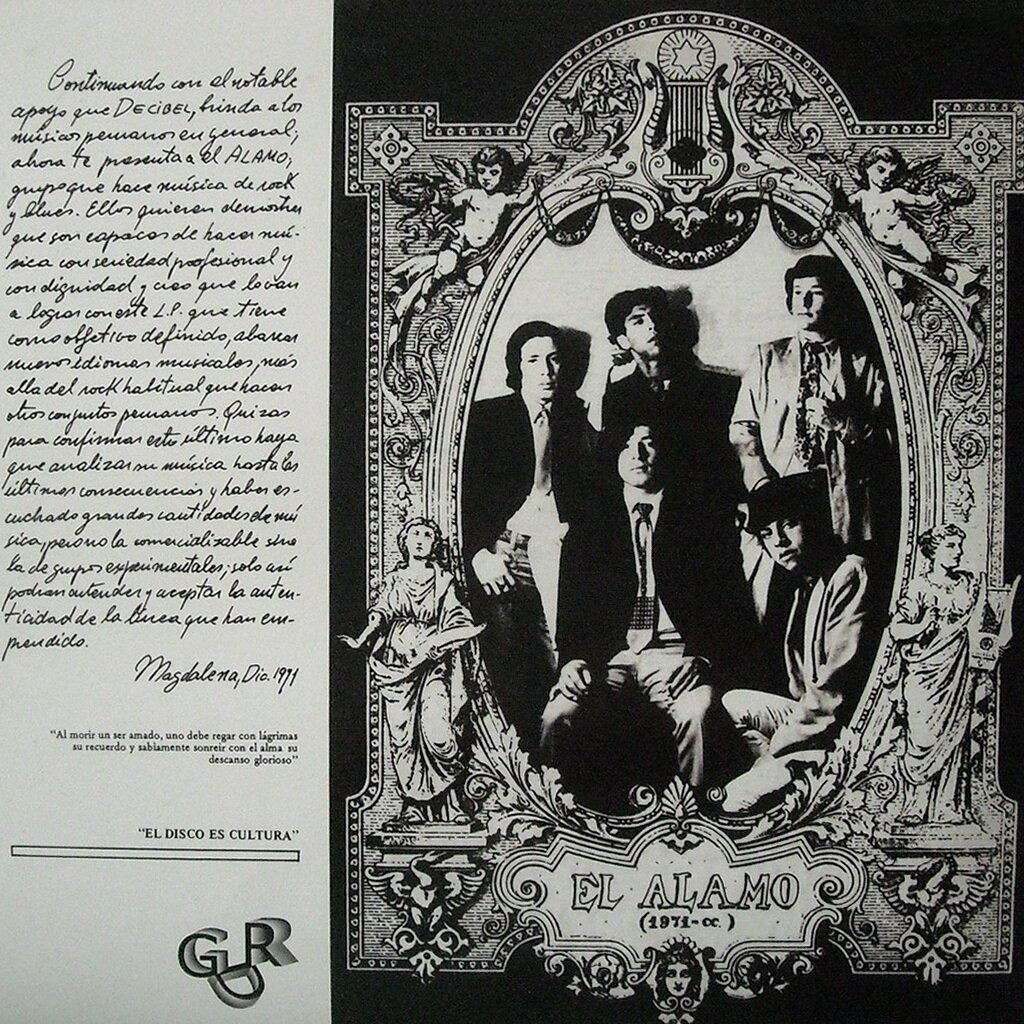 Continuando con el notable
apoyo que DECIBEL, brinda a los
músicos peruanos en general;
ahora te presenta a el ALAMO;
grupo que hace música de rock
y blues. Ellos quieren demostrar
que son capaces de hacer mú-
sica con seriedad profesional y
con dignidad y creo que lo van
a lograr con este L.P. que tiene
como objetivo definido, abarcar
nuevos idiomas musicales, más
alla del rock habitual que hacen
otros conjuntos peruanos. Quizas
para confirmar esto último haya
que analizar su música hasta las
últimas consecuencias y haber es-
cuchado grandes cantidades de mú
sica, pero no la comercializable sino
la de grupos experimentales; solo así
podran entender y aceptar la auten-
ticidad de la línea que han em-
prendido.
Magdalena, Dic. 1971
"Al morir un ser amado, uno debe regar con lágrimas
su recuerdo y sabiamente sonreir con el alma su
descanso glorioso"
"EL DISCO ES CULTURA"
EL ALAMO
(1971-cc.)